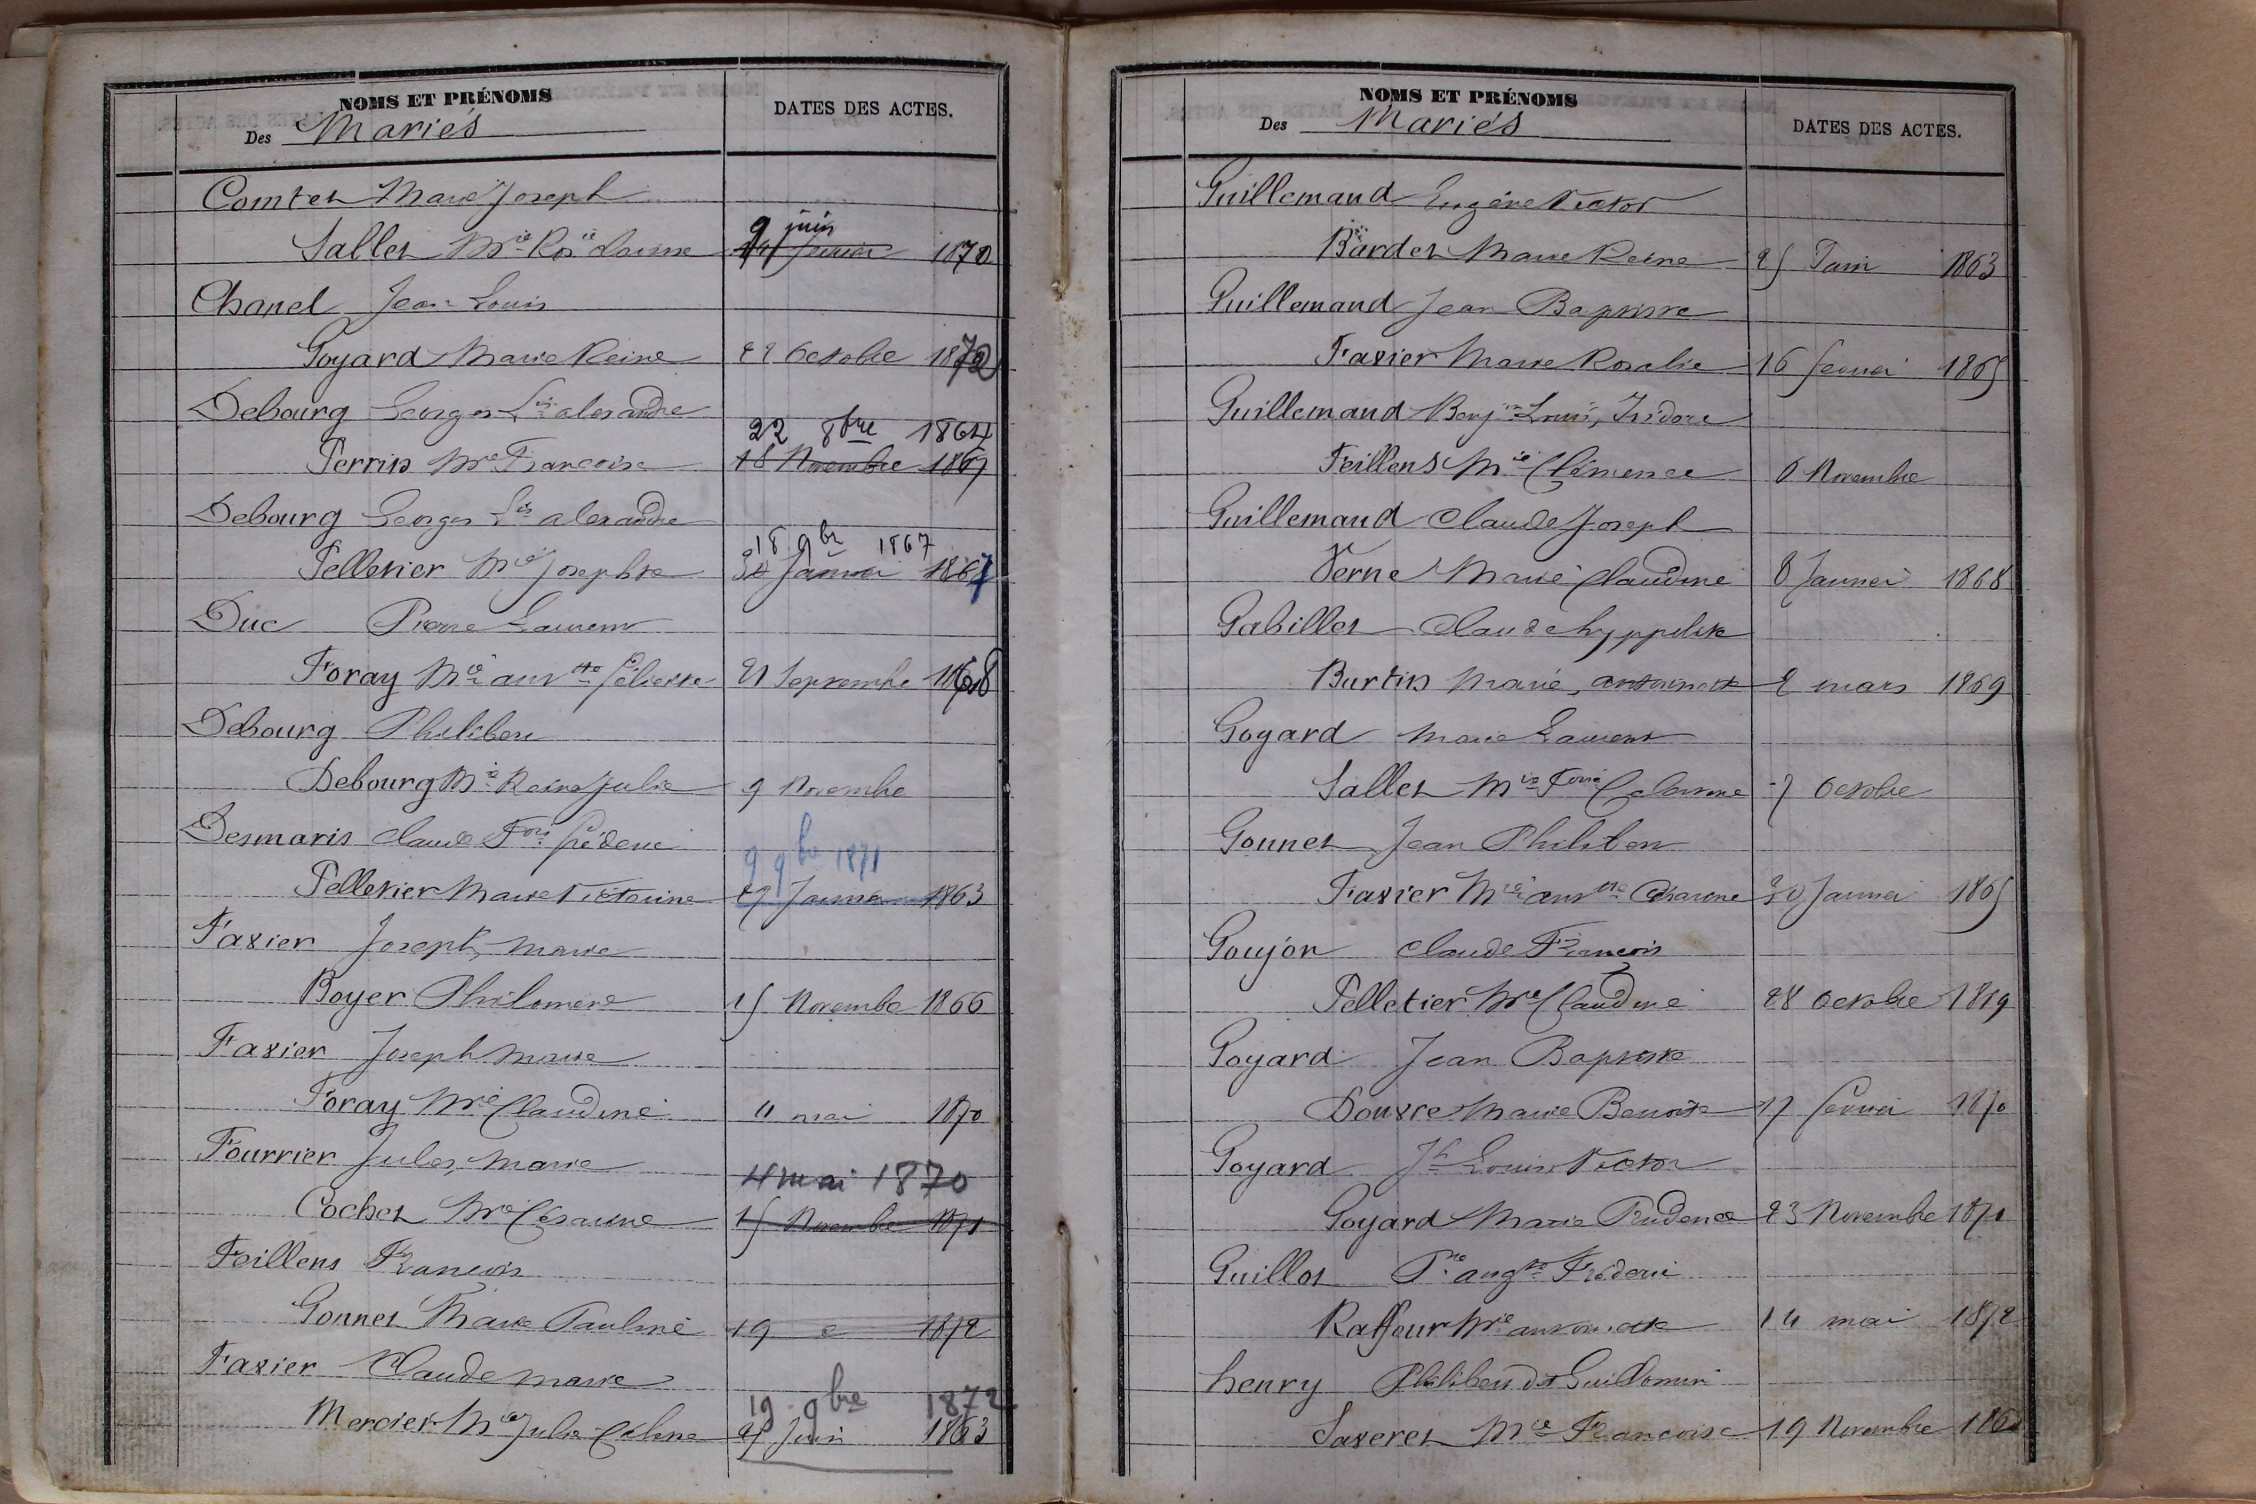 NOMS ET PRÉNOMS
Des Mariés
DATES DES ACTES.
Comtet Marie Joseph
9 juin
Sallet Mie Rosie 1870
Chanel Jean Louis
Goyard Marie Reine 22 Octobre 1872
Debourg Georges Lis alexandre
22 8bre 1864
Perrin Mie Francoise 18 Novembre 1867
Debourg Georges Lis alexandre
18 9bre 1867
Pelletier Mie Josephte 30 Janvier 1867
Duc Pierre Laurent
Foray Mie antte 21 Septembre 1868
Debourg Philibert
Debourg Mie Reine Julie 9 Novembre
Desmaris Claude Fois Frédéric
9 9bre 1871
Pelletier Marie Victorine 27 Janvier 1863
Faxier Joseph, Marie
Boyer Philomène 15 Novembre 1866
Faxier Joseph Marie
Foray Mie Claudine 4 mai 1870
Fourrier Jules, Marie
4 mai 1870
Cochet Mie Césarine 15 Novembre 1871
Feillens François
Gonnet Marie Pauline 19 1872
Faxier Claude Marie
19 9bre 1872
Mercier Mie Julie Céline 25 Juin 1863
NOMS ET PRÉNOMS
Des Mariés
DATES DES ACTES.
Guillemaud Eugène Victor
Bardet Marie Reine 25 Juin 1863
Guillemaud Jean Baptiste
Faxier Marie Rosalie 16 fevrier 1865
Guillemaud Benjin Louis, Isidore
Feillens Mie Clémence 6 Novembre
Guillemaud Claude Joseph
Verne Marie Claudine 8 Janvier 1868
Gabillet Claude hyppolite
Burtin Marie, antoinette 2 mars 1869
Goyard Marie Laurent
Sallet Mie Foise 7 Octobre
Gonnet Jean Philibert
Faxier Mie antte 30 Janvier 1865
Goujon Claude François
Pelletier Mie Claudine 28 Octobre 1869
Goyard Jean Baptiste
Marie Benoite 17 fevrier 1870
Goyard Jh Louis Victor
Goyard Marie Prudence 23 Novembre 1871
Guillot Pre augte Frédéric
Raffour Mie antoinette 14 mai 1872
henry Philibert dt Guillomin
Saxeret Mie Francoise 19 Novembre